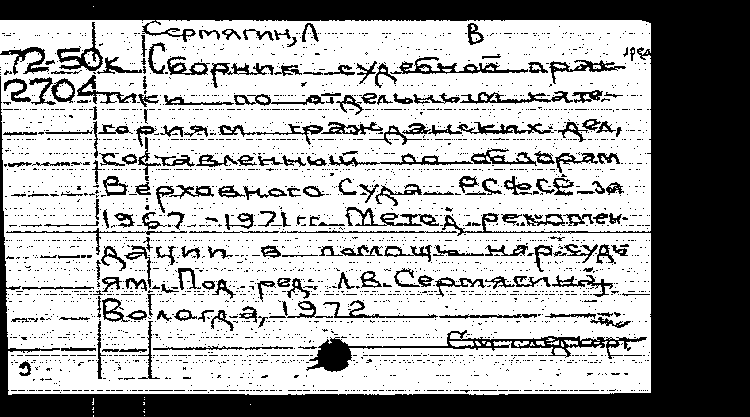 Сермягин, Л В
72-50к Сборник судебной прак-
2704 тики по отдельным кате-
гориям гражданских дел,
составленный по обзорам
Верховного Суда РСФСР за
1967 -1971 гг. Метод. рекомен-
дации в помощь нар. судь
ям. Под ред. Л.В. Сермягина,
Вологда, 1972
См след карт